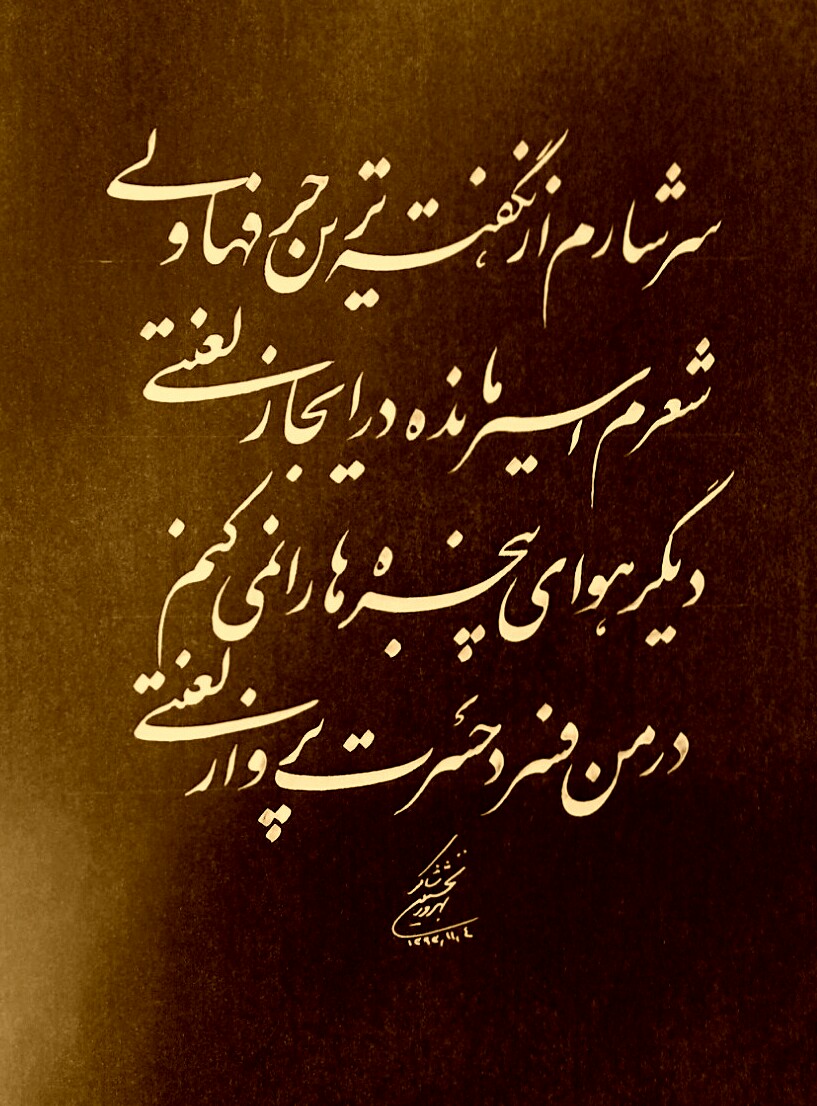 سرشارم از نگفته ترین حرفها ولی
شعرم اسیر مانده در ایجاز لعنتی
دیگر هوای پنجره ها را نمی کنم
در من فسرد حسرت پرواز لعنتی